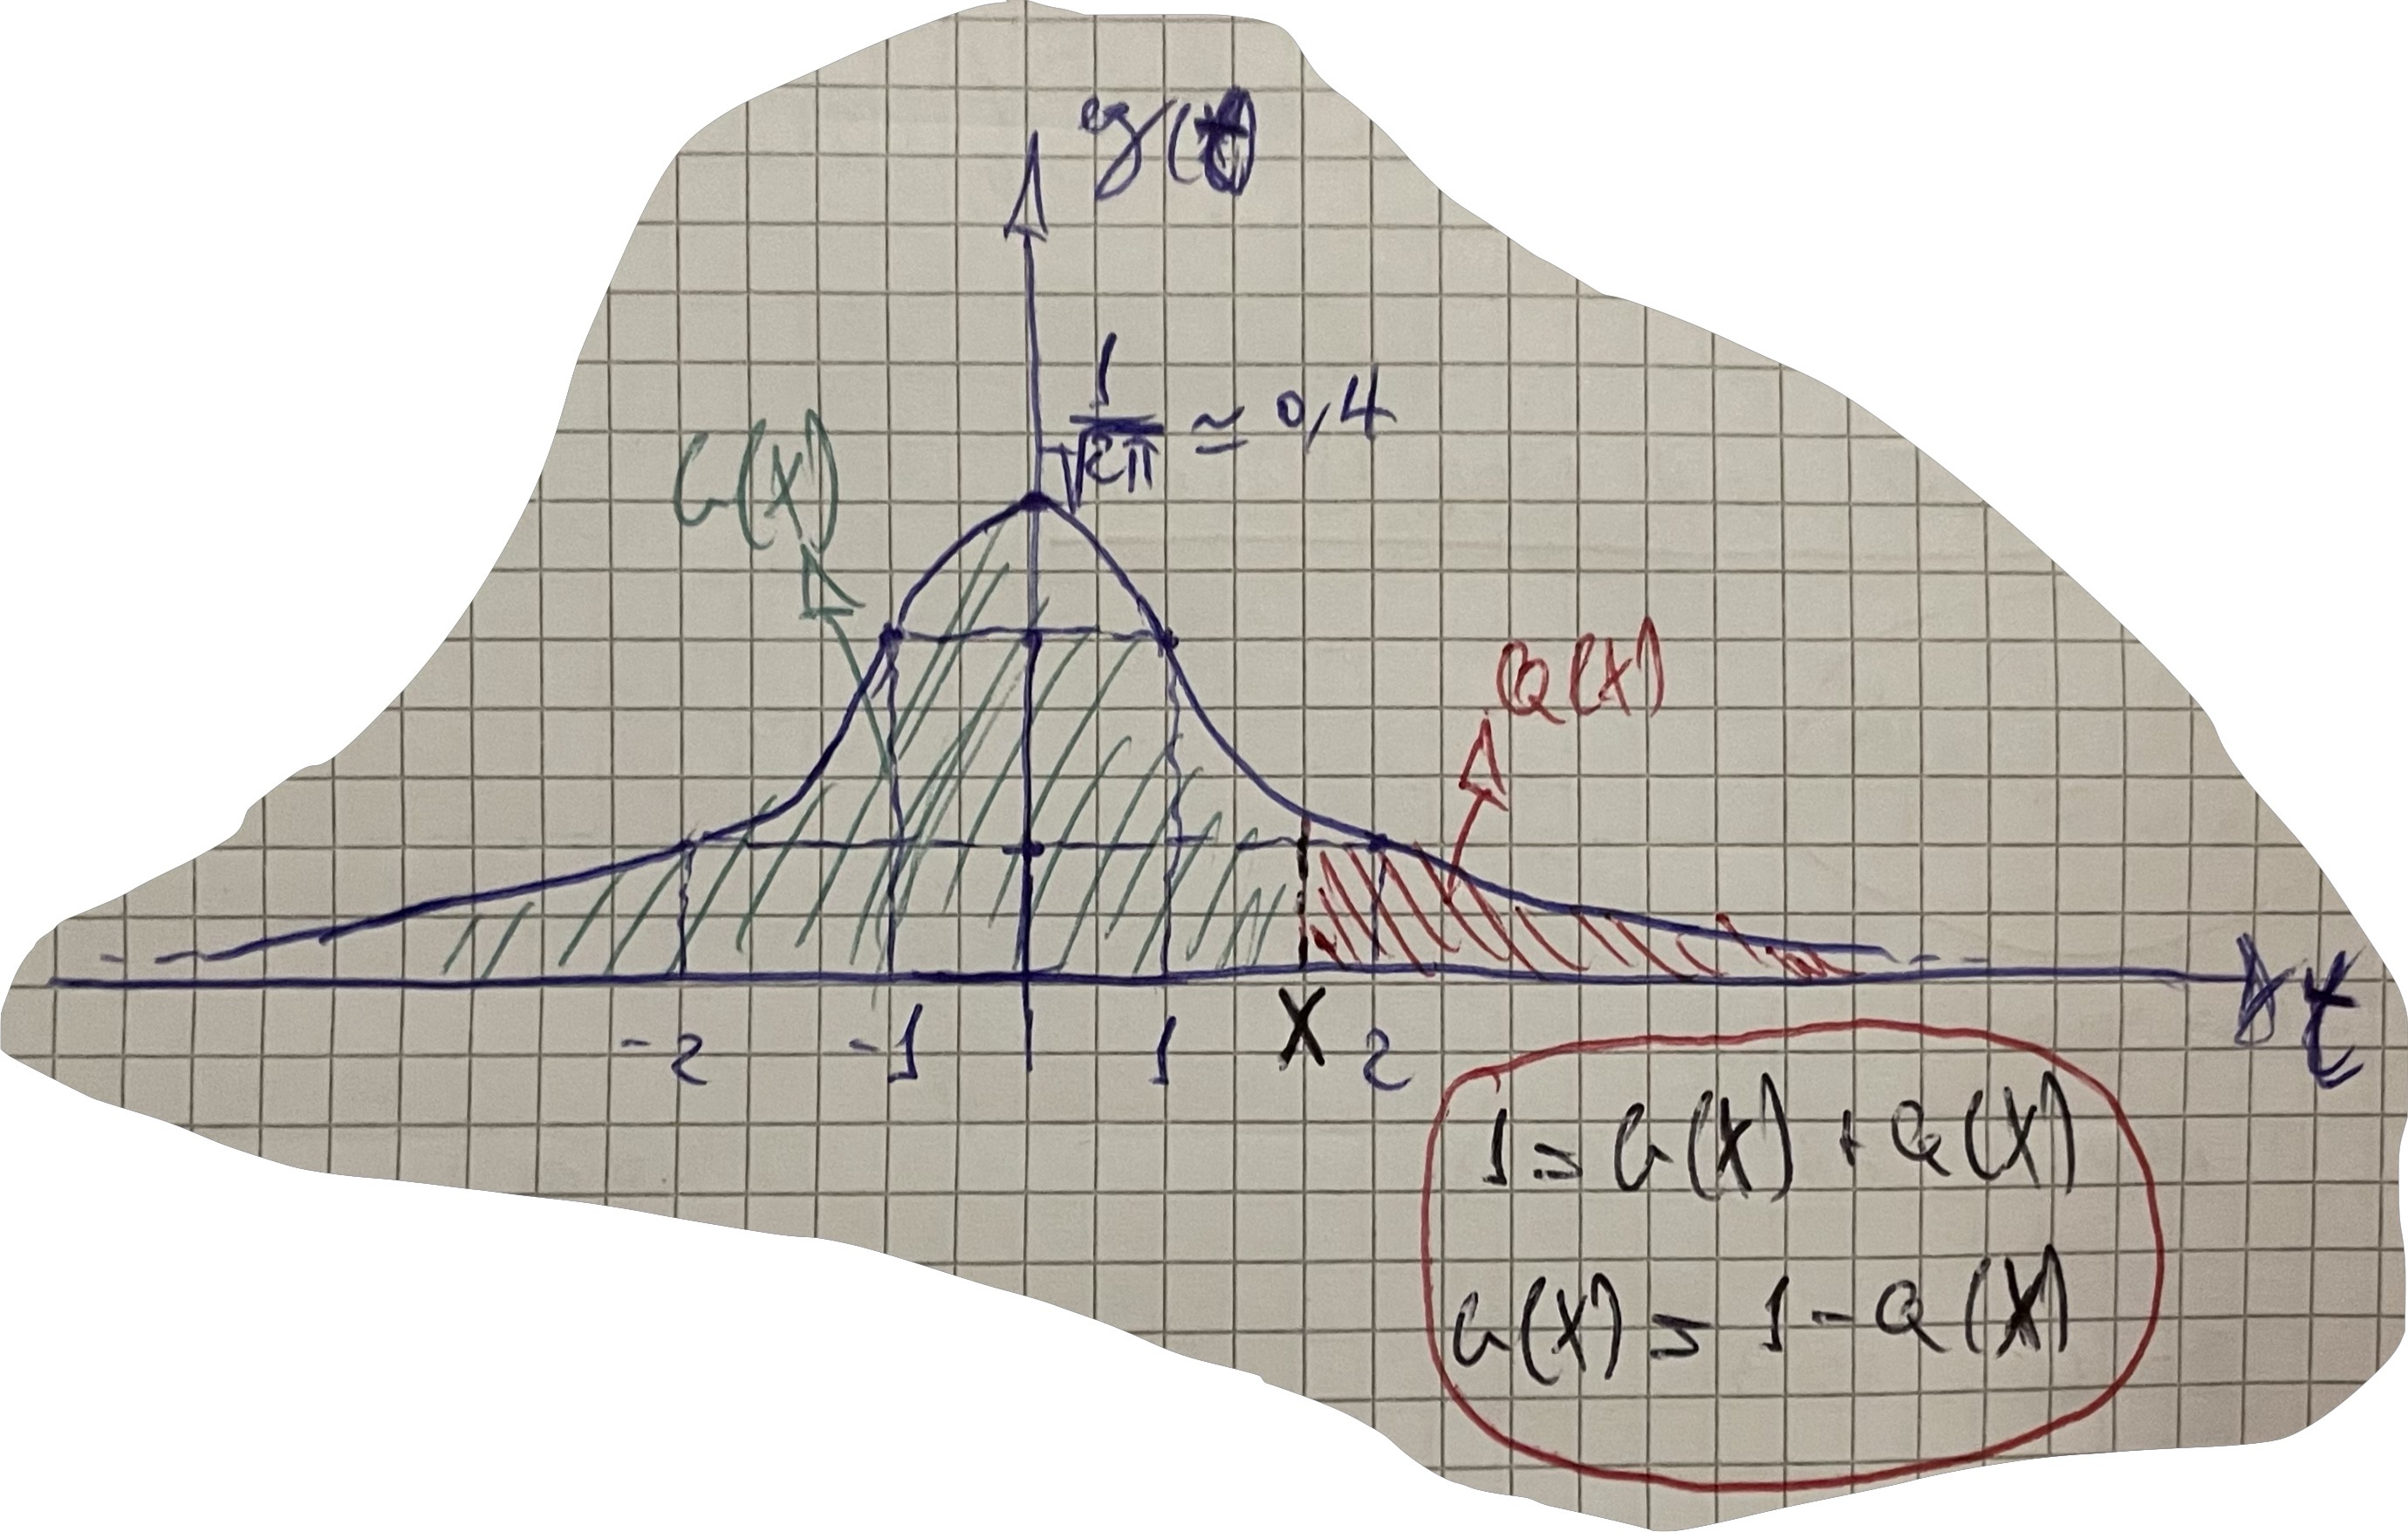 g(t)
1/√2π ≃ 0,4
G(X)
Q(X)
-2 -1 1 X 2 t
1 = G(X) + Q(X)
G(X) = 1 - Q(X)